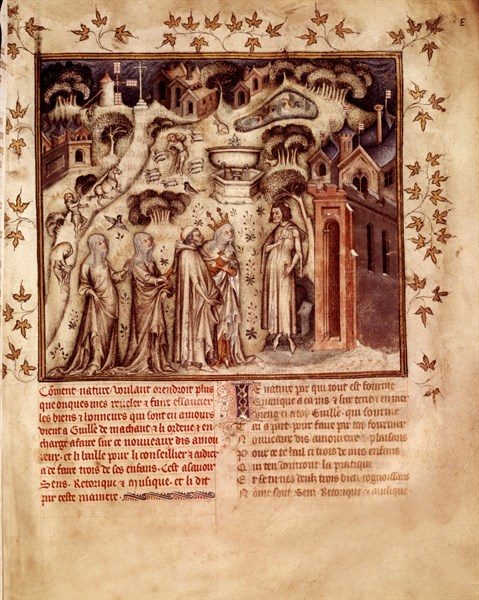 E
Coment nature voulant orendroit plus
que onques mes reveler et faire essaucier
les biens et honneurs qui sont en amours
vient a Guille de machaut et li ordene et en
charge a faire sur ce nouveaux dis amou
reux. et li baille pour li conseillier et aidier
a ce faire trois de ses enfans. Cest asavoir
Sens. Retorique et Musique. et li dit
par ceste maniere.
Je nature par qui tout est fourme
Quanque a ca ius et sur terre et en mer
Vieng ci a toy Guille qui fourme
Tai a part pour faire par toy fourmer
Nouveaus dis amoureus plaisans
Pour ce te bail ci trois de mes enfans
Qui ten donront la pratique
Et se tu nes deuls trois bien cognoissans
Nome sont Sens Retorique et Musique